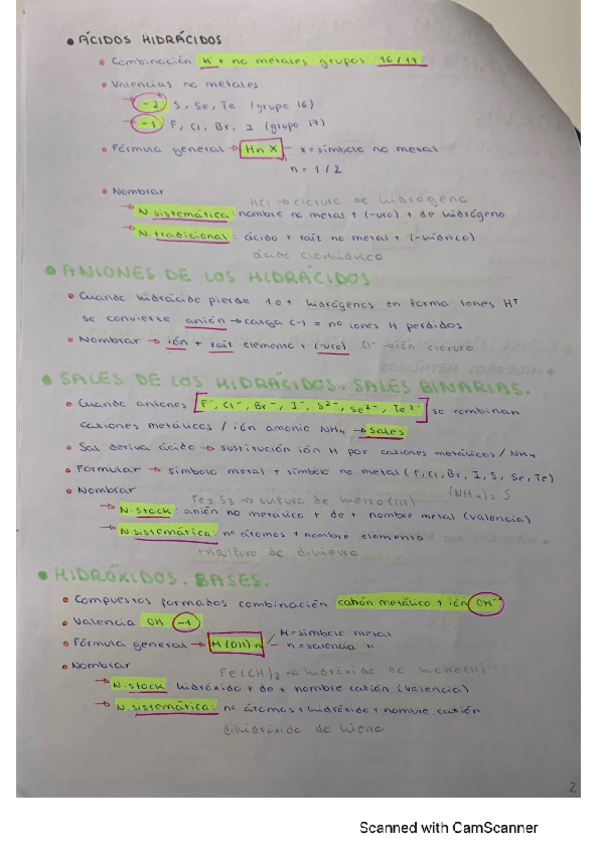 • ÁCIDOS HIDRÁCIDOS
• Combinación H + no metales grupos 16/17
• Valencias no metales:
→ -2 S, Se, Te (grupo 16)
→ -1 F, Cl, Br, I (grupo 17)
• Fórmula general → Hn X → x = símbolo no metal
n = 1/2
• Nombrar
HCl → cloruro de hidrógeno
→ N. sistemática: nombre no metal + (-uro) + de hidrógeno
→ N. tradicional: ácido + raíz no metal + (-hídrico)
ácido clorhídrico
• ANIONES DE LOS HIDRÁCIDOS
• Cuando hidrácido pierde 1 o + hidrógenos en forma iones H+
se convierte anión → carga (-) = no iones H perdidos
• Nombrar → ión + raíz elemento + (-uro) Cl- → ión cloruro
• SALES DE LOS HIDRÁCIDOS. SALES BINARIAS.
• Cuando aniones [F-, Cl-, Br-, I-, S2-, Se2-, Te2-] se combinan
cationes metálicos / ión amonio NH4 → sales
• Sal deriva ácido → sustitución ión H por cationes metálicos / NH4
• Formular → símbolo metal + símbolo no metal (F, Cl, Br, I, S, Se, Te)
• Nombrar
Fe2 S3 → sulfuro de hierro (III) (NH4)2 S
→ N. stock: anión no metálico + de + nombre metal (valencia)
→ N. sistemática: no átomos + nombre elemento
trisulfuro de dihierro
• HIDRÓXIDOS. BASES.
• Compuestos formados combinación catión metálico + ión OH-
• Valencia OH -1
• Fórmula general → M(OH)n M = símbolo metal
n = valencia
• Nombrar
Fe(OH)2 → hidróxido de hierro (II)
→ N. stock: hidróxido + de + nombre catión (valencia)
→ N. sistemática: no átomos + hidróxido + nombre catión
dihidróxido de hierro
2
Scanned with CamScanner